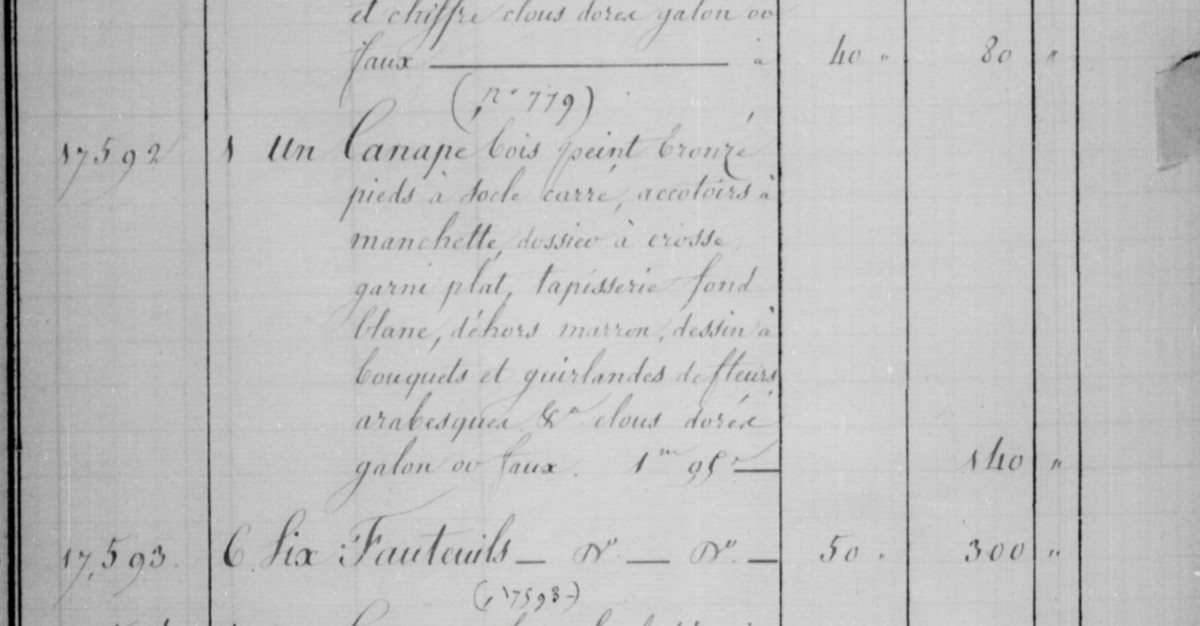 et chiffre clous dorés galon or
faux — à 40 " 80 "
(n° 779)
17592 1 Un Canapé bois peint bronzé
pieds à socle carré, accotoirs à
manchette, dossier à crosse
garni plat, tapisserie fond
blanc, déhors marron, dessin à
bouquets et guirlandes de fleurs
arabesques &a clous dorés
galon or faux. 1m 95c — 140 "
17,593. 6. Six Fauteuils — do — do — 50 " 300 "
(17593)